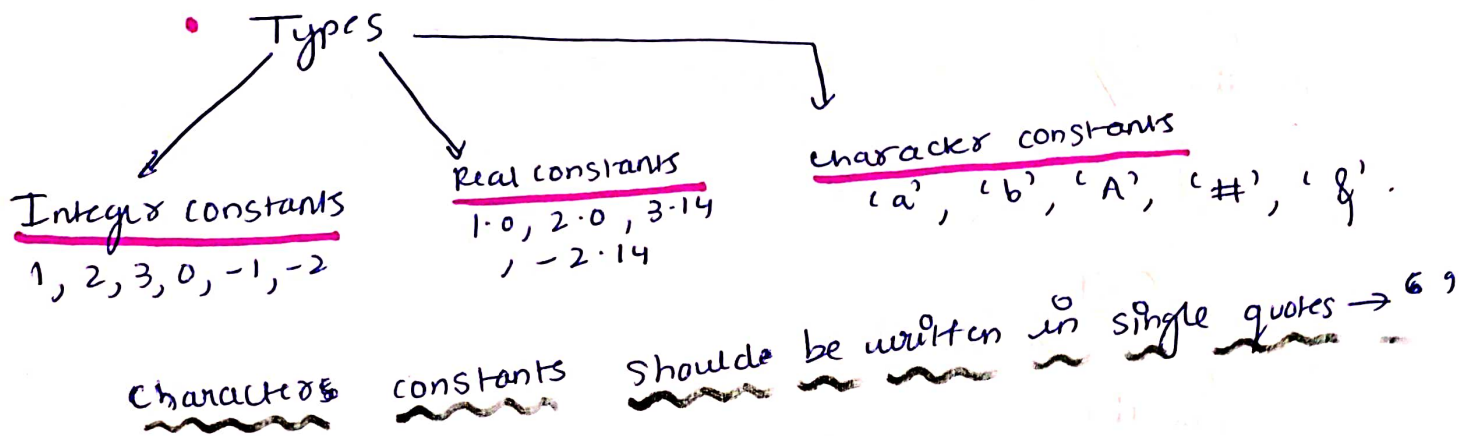 Types
Integer constants
1, 2, 3, 0, -1, -2
Real constants
1.0, 2.0, 3.14
, -2.14
character constants
'a', 'b', 'A', '#', '&'.
characters constants should be written in single quotes → ' '